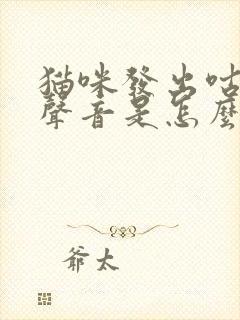 猫咪發出咕
聲音是怎麼
爺太